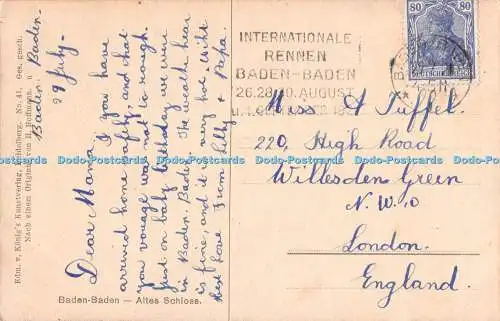 Baden-Baden
29 July.
Dear Mama. I you have
arrivid home safely, and that
you voyage was not to rough.
just on baby birthday we were
in Baden. Baden. The weath hear
is fine, and it is very hot, with
Best Love from Lilly & Papa.
INTERNATIONALE
RENNEN
BADEN-BADEN
26.28. AUGUST
80 80
DEUTSCHES REICH
Miss A Tuffel.
220, High Road
Willesden Green
N.W.10
London.
England.
Röm. v. König's Kunstverlag, Heidelberg. No. 31. Ges. gesch.
Nach einem Original von
Baden-Baden — Altes Schloss.
Dodo-Postcards Dodo-Postcards Dodo-Postcards Dodo-Postcards Dodo-Postcards Dodo-Postcards